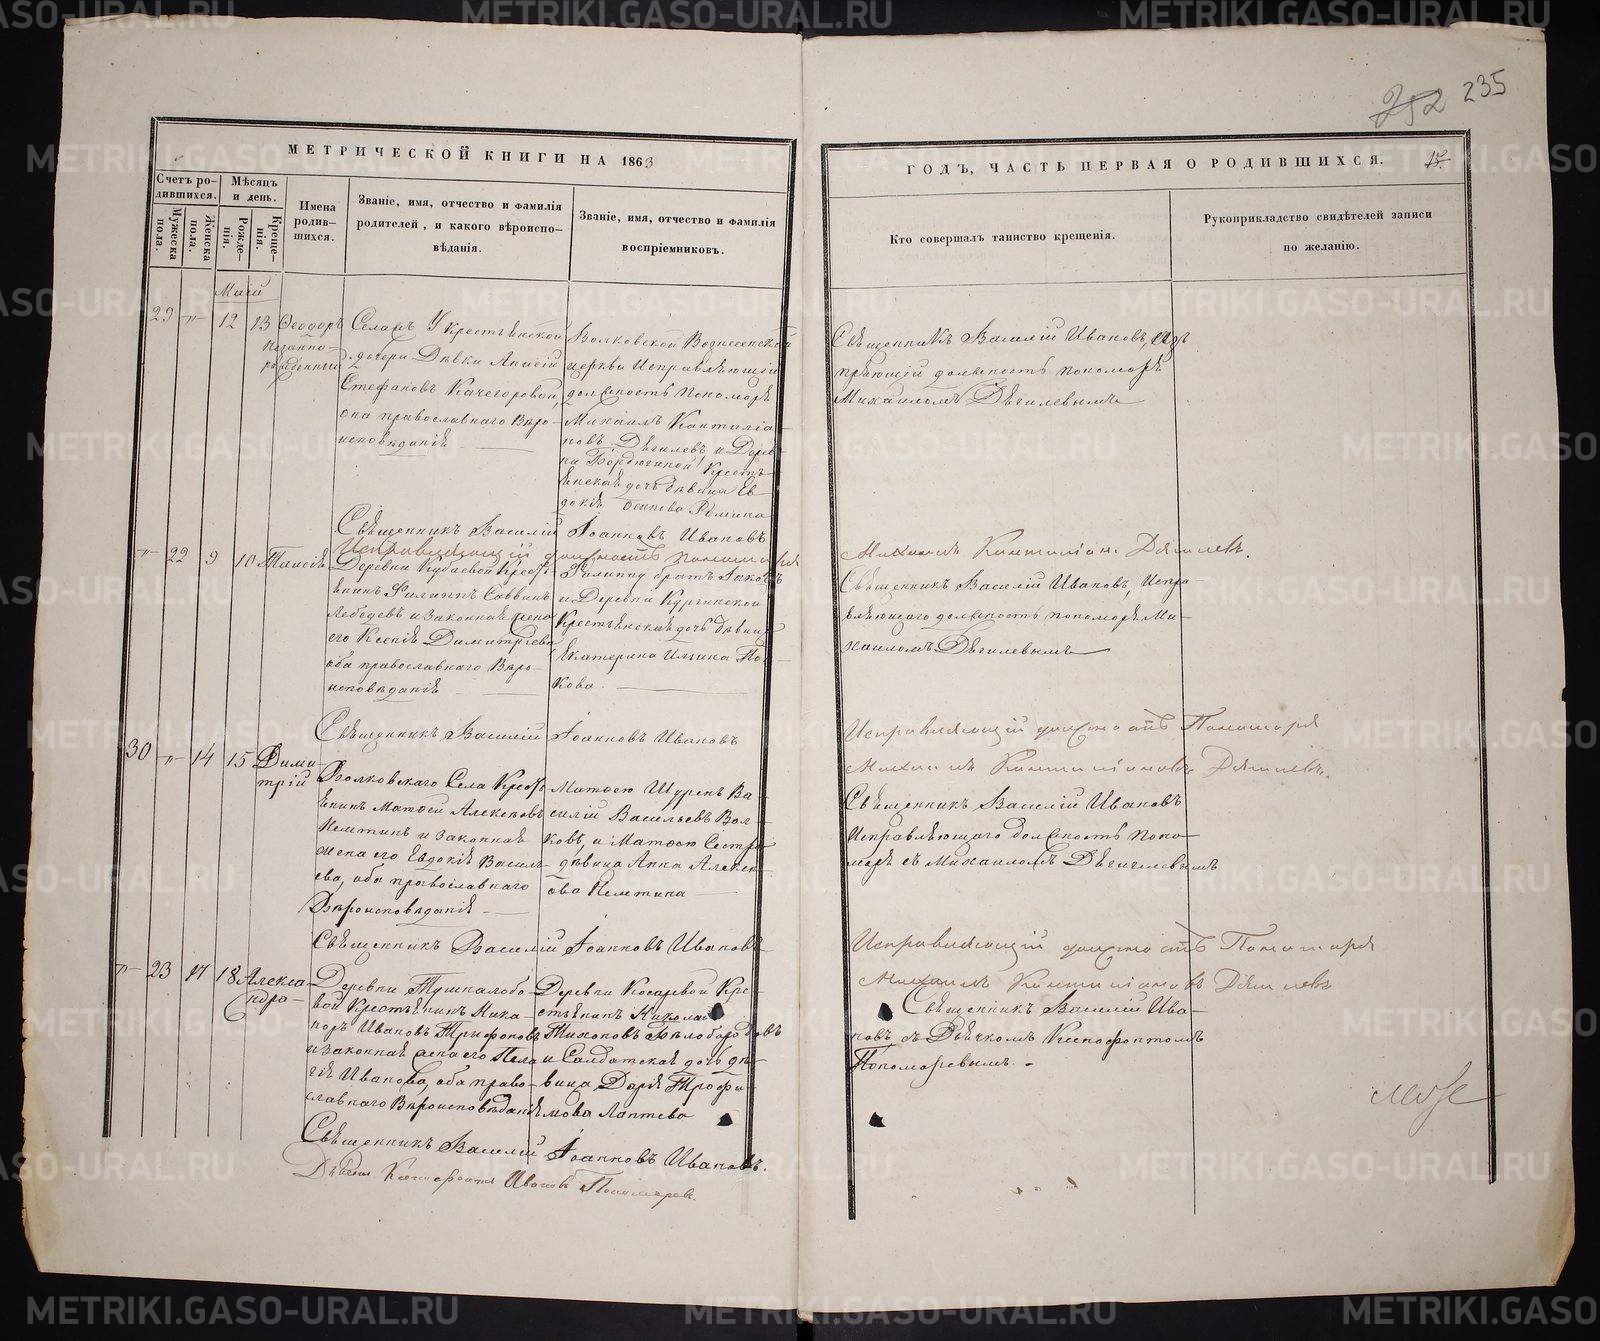 252 235
МЕТРИЧЕСКОЙ КНИГИ НА 1863
ГОДЪ, ЧАСТЬ ПЕРВАЯ О РОДИВШИХСЯ.
Счетъ ро-
дившихся.
Мужеска
пола.
Женска
пола.
Мѣсяцъ
и день.
Рожде-
нія.
Креще-
нія.
Имена
родив-
шихся.
Званіе, имя, отчество и фамилія
родителей, и какого вѣроиспо-
вѣданія.
Званіе, имя, отчество и фамилія
воспріемниковъ.
Кто совершалъ таинство крещенія.
Рукоприкладство свидѣтелей записи
по желанію.
Маій
29 " 12 13 Ѳеодоръ
незакон-
рожденный
дочери Дѣвки Анисіи
Стефановъ Качегоровой,
она православнаго Вѣро-
исповѣданія
Волковской Вознесенской
церкви Исправляющій
должность пономаря
Михаилъ Кантиліа-
новъ Дягилевъ и Дерев-
ни Бердюгиной Кресть-
янская дочь дѣвица Ев-
докія
Священникъ Василій Ивановъ,
должность пономаря
Михаиломъ Дягилевымъ
Священникъ Василій Іоанновъ Ивановъ
Исправляющій должность пономаря
Михаилъ Кантиліан. Дягилевъ.
" 22 9 10 Таисія
Деревни Кубаевой Крест-
янинъ Филиппъ Саввинъ
Лебедевъ и законная жена
его Ксенія Димитріева
оба православнаго Вѣро-
исповѣданія
Филиппу братъ Яковъ
и Деревни
Крестьянская дочь дѣвица
Екатерина Ильина По-
кова.
Священникъ Василій Ивановъ, Испра-
вляющаго должность пономаря Ми-
хаиломъ Дягилевымъ
Священникъ Василій Іоанновъ Ивановъ
Исправляющій должность Пономаря
Михаилъ Кантиліановъ Дягилевъ.
30 " 14 15 Дими-
трій
Волковскаго Села Крест-
янинъ Матѳей Алексѣевъ
Чемтинъ и законная
жена его Евдокія Василь-
ева, оба православнаго
Вѣроисповѣданія
Матѳею Шуринъ Ва-
силій Васильевъ Вол-
ковъ, и Матѳею Сестра
дѣвица Анна Алексѣ-
ова Чемтина
Священникъ Василій Ивановъ
Исправляющаго должность поно-
маря съ Михаиломъ Дягилевымъ
Священникъ Василій Іоанновъ Ивановъ
Исправляющій должность Пономаря
Михаилъ Кантиліановъ Дягилевъ
" 23 17 18 Алекса-
ндра
Деревни Тушналобо-
вой Крестьянинъ Ника-
норъ Ивановъ Трыфоновъ
и законная жена его Пела-
гія Иванова, оба право-
славнаго Вѣроисповѣданія
Деревни Косаревой Кре-
стьянинъ Николай
Тихоновъ Бѣлобородовъ
и Солдатская дочь дѣ-
вица Дарія Трофи-
мова Лаптева
Священникъ Василій Ива-
новъ съ Дьячкомъ Ксенофонтомъ
Пономаревымъ.
Священникъ Василій Іоанновъ Ивановъ.
Дьячекъ Ксенофонтъ Ивановъ Пономаревъ.
METRIKI.GASO-URAL.RU